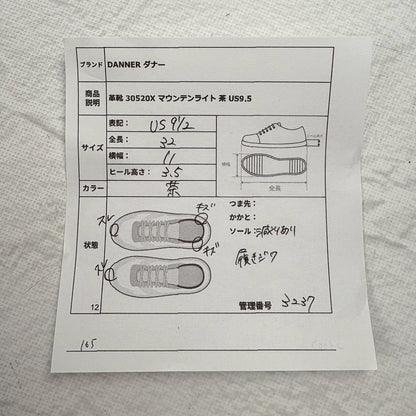 ブランド DANNER ダナー
商品説明 革靴 30520X マウンテンライト 茶 US9.5
サイズ
表記： US 9 1/2
全長： 32
横幅： 11
ヒール高さ： 3.5
ヒール高さ
横幅
全長
カラー 茶
状態
スレ
キズ
キズ
スレ
つま先：
かかと：
ソール：減りあり
履きジワ
12
管理番号 3237
165